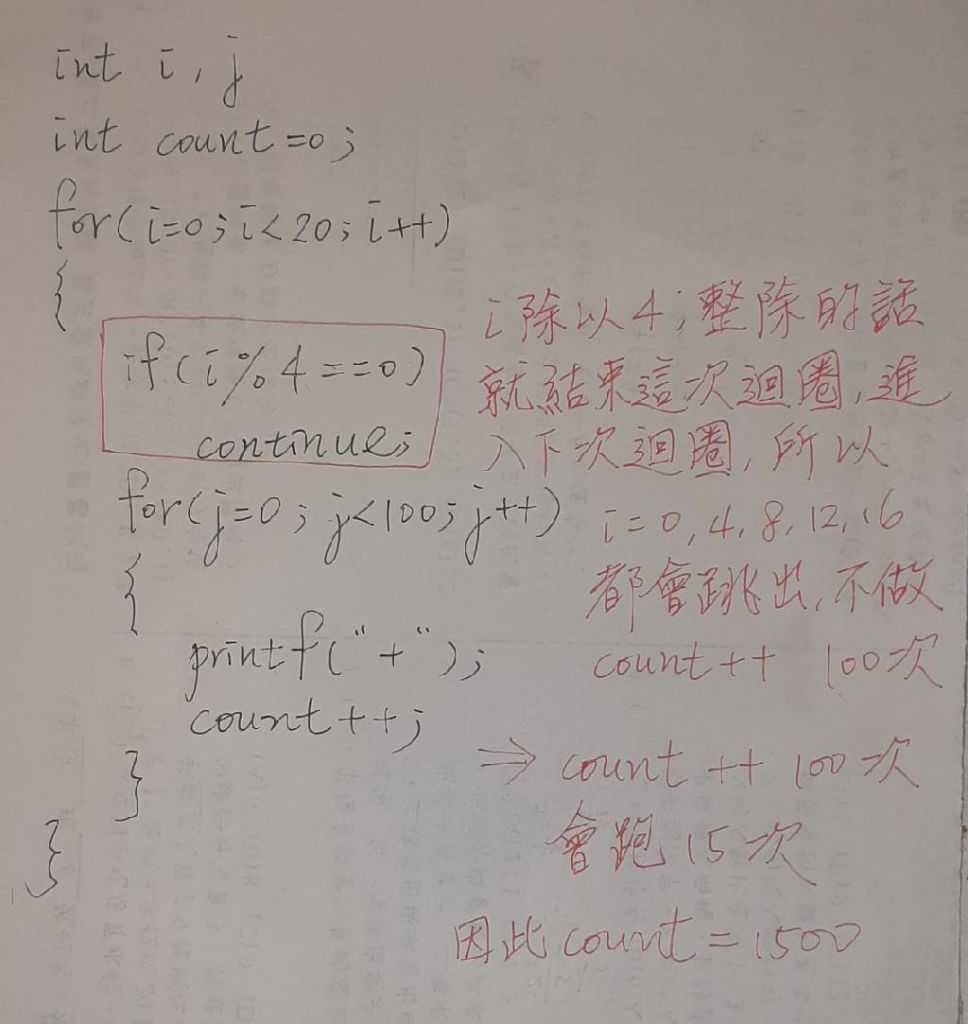 int i, j
int count=0;
for(i=0;i<20;i++)
{
if(i%4==0)
continue;
for(j=0;j<100;j++)
{
printf("+");
count++;
}
}
i除以4,整除的話
就結束這次迴圈,進
入下次迴圈,所以
i=0,4,8,12,16
都會跳出,不做
count++ 100次
⇒ count++ 100次
會跑15次
因此count=1500